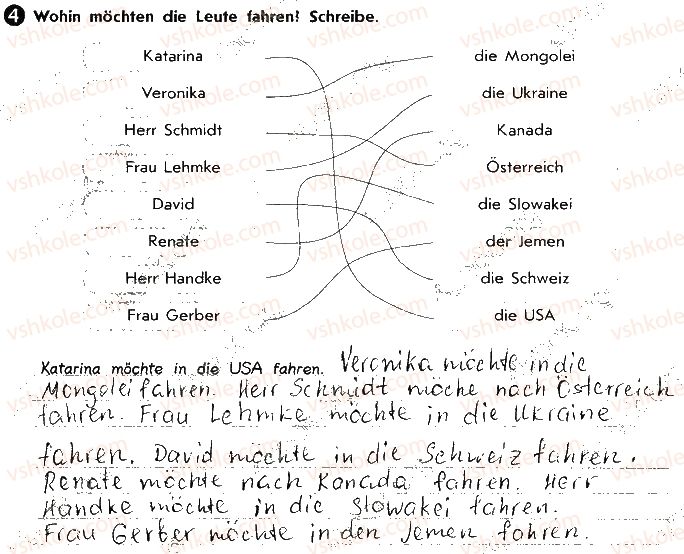 4 Wohin möchten die Leute fahren? Schreibe.
Katarina die Mongolei
Veronika die Ukraine
Herr Schmidt Kanada
Frau Lehmke Österreich
David die Slowakei
Renate der Jemen
Herr Handke die Schweiz
Frau Gerber die USA
Katarina möchte in die USA fahren. Veronika möchte in die
Mongolei fahren. Herr Schmidt möche nach Österreich
fahren. Frau Lehmke möchte in die Ukraine
fahren. David möchte in die Schweiz fahren.
Renate möchte nach Kanada fahren. Herr
Handke möchte in die Slowakei fahren.
Frau Gerber möchte in den Jemen fahren.